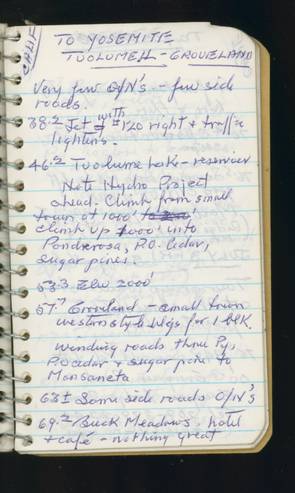 CALIF
TO YOSEMITE
TUOLUMELL - GROVELAND
Very few O/N's - few side
roads.
38.2 Jct with #120 right + traffic
lights.
46.2 Tuolume Lake - reservoir
Hetc Hydro Project
ahead. Climb from small
town at 1000'
climb up 1000' into
Ponderosa, P.O. Cedar,
sugar pines.
53.3 Elev 2000'
57.7 Groveland - small town
western style bldgs for 1 blk.
winding roads thru Py,
P.O cedar + sugar pine to
Manzaneta
63± Some side roads O/N's
69.2 Buck Meadows, hotel
+ café - nothing great